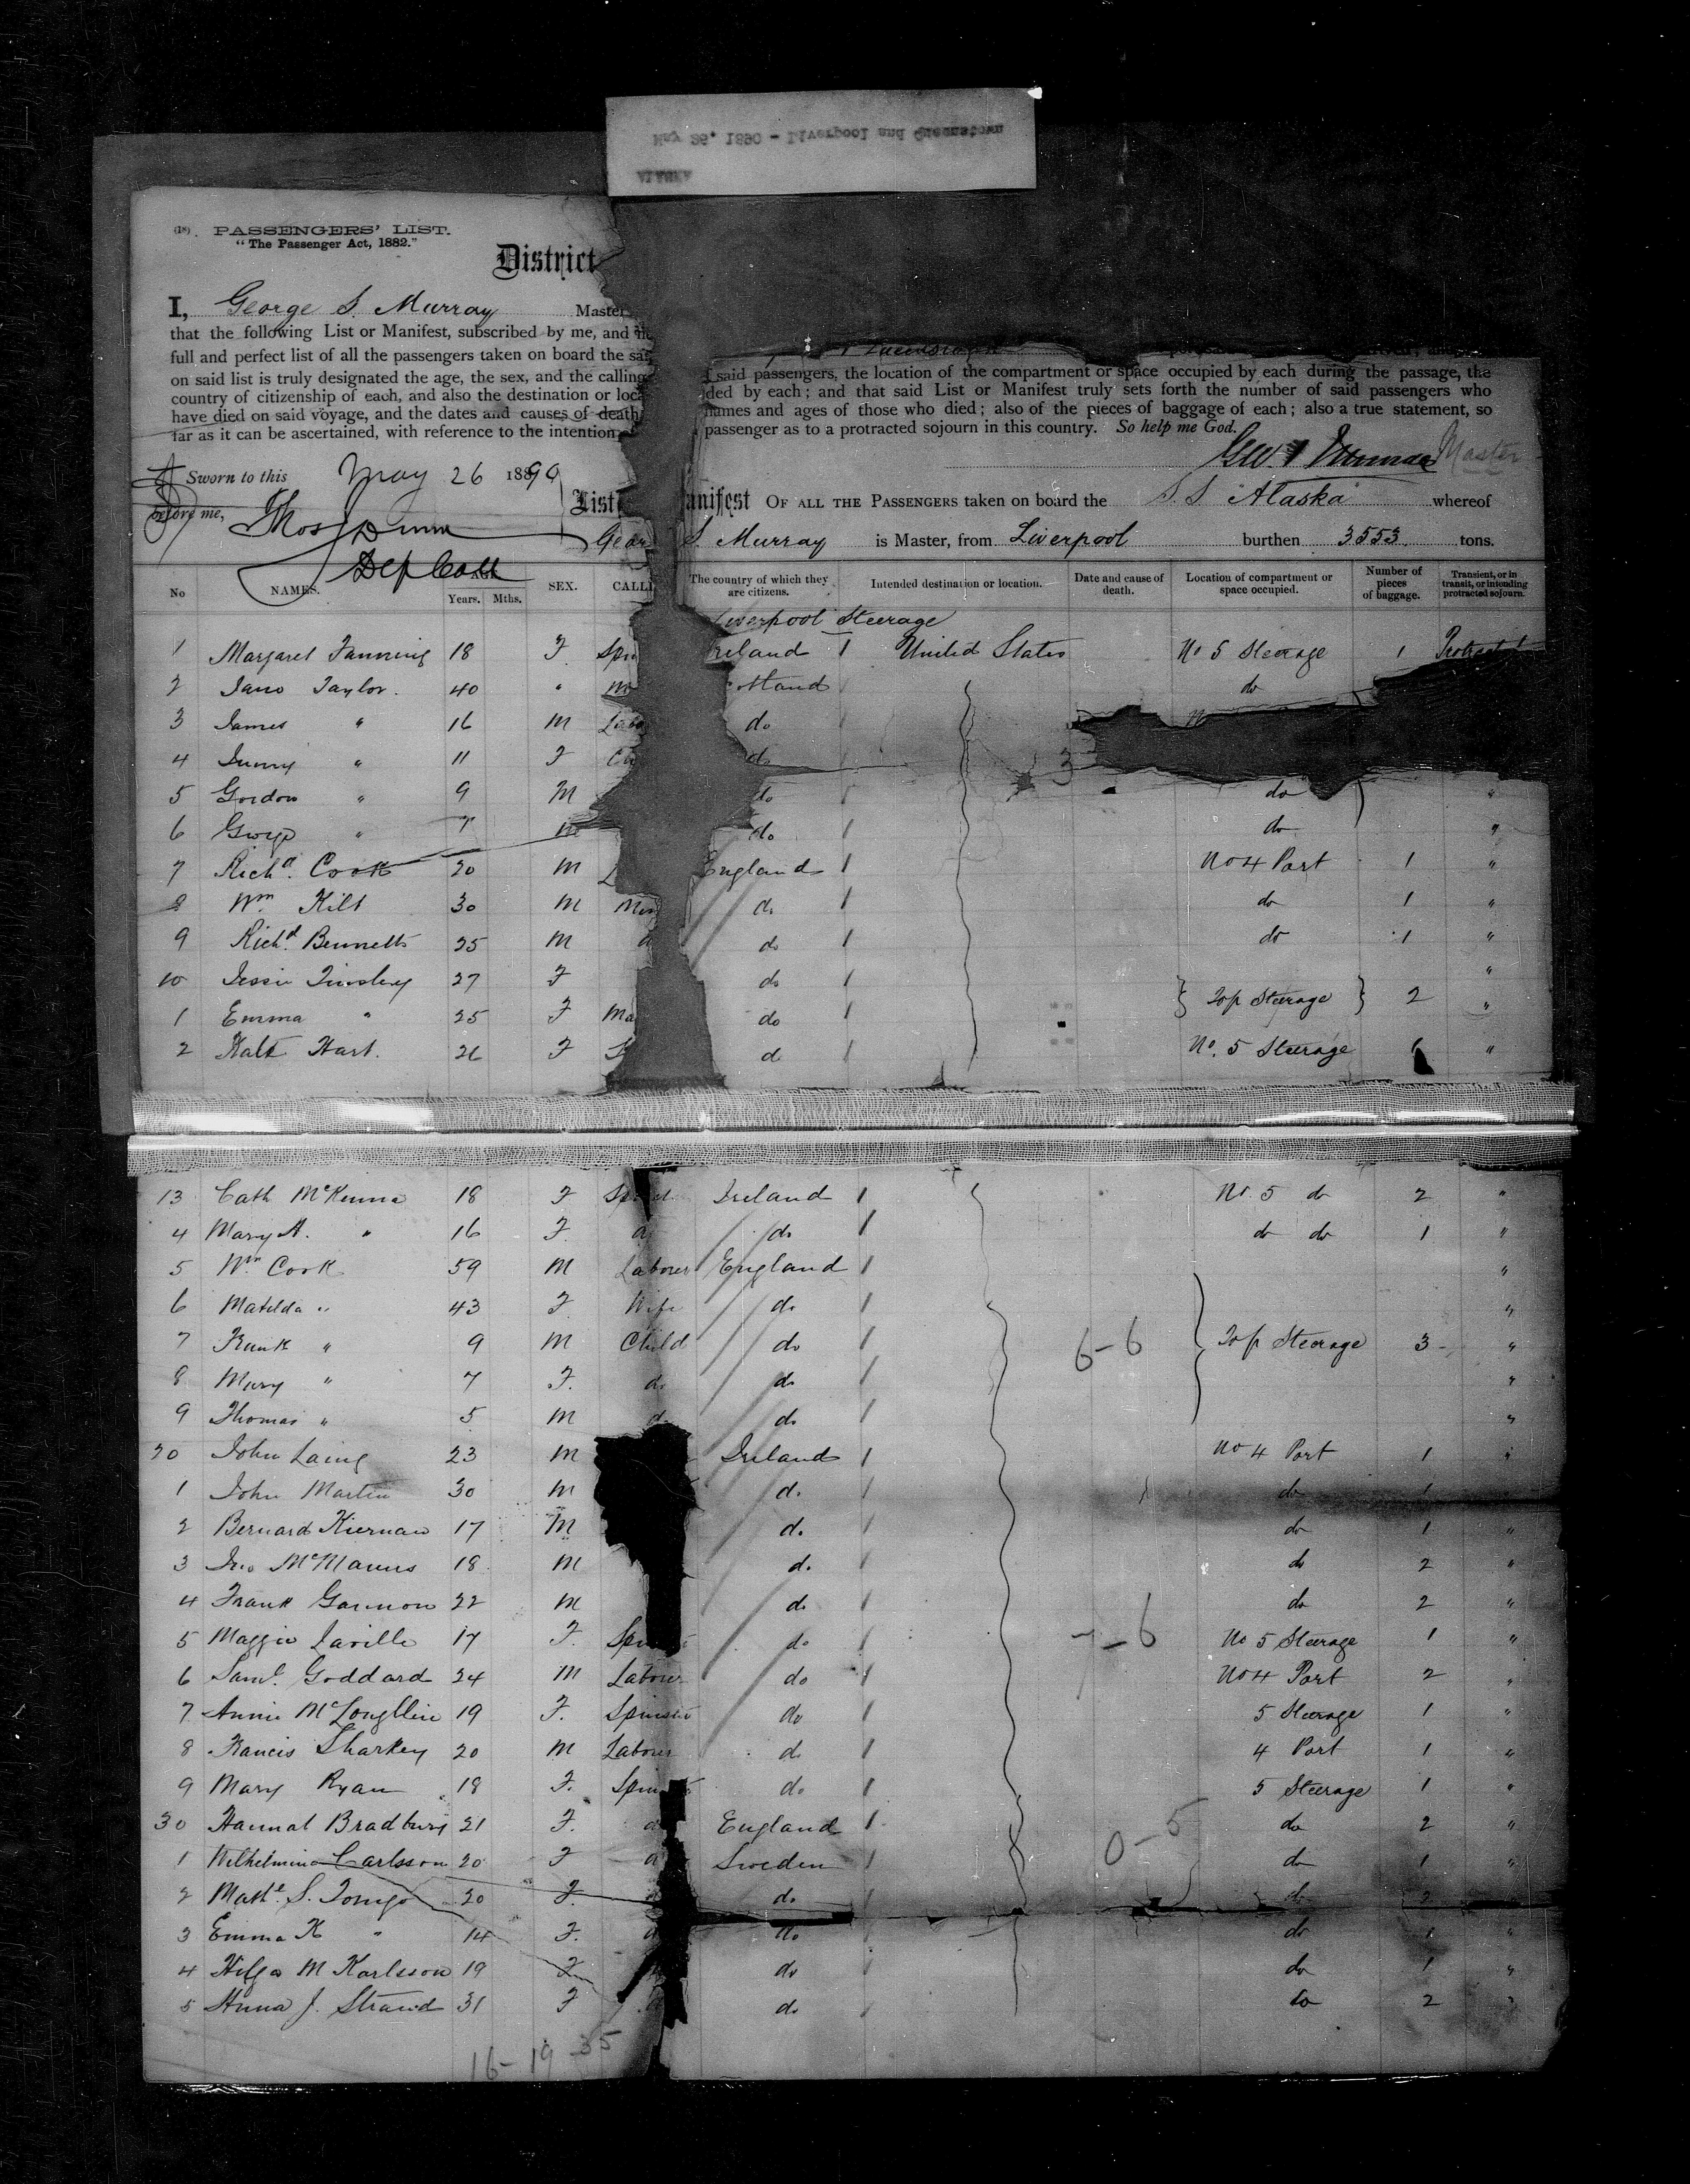 May 26, 1890 - Liverpool and Queenstown
ALASKA
(18) PASSENGERS' LIST.
"The Passenger Act, 1882."
District
I, George S. Murray Master
that the following List or Manifest, subscribed by me, and
full and perfect list of all the passengers taken on board the
on said list is truly designated the age, the sex, and the calling said passengers, the location of the compartment or space occupied by each during the passage, the
country of citizenship of each, and also the destination or ded by each; and that said List or Manifest truly sets forth the number of said passengers who
have died on said voyage, and the dates and causes of death names and ages of those who died; also of the pieces of baggage of each; also a true statement, so
far as it can be ascertained, with reference to the intention passenger as to a protracted sojourn in this country. So help me God.
Master
Sworn to this May 26 1890
before me, Thos J Dunn
Dep Coll
List anifest OF ALL THE PASSENGERS taken on board the S.S. "Alaska" whereof
Geor S. Murray is Master, from Liverpool burthen 3553 tons.
No NAMES. AGE Years. Mths. SEX. CALLI The country of which they are citizens. Intended destination or location. Date and cause of death. Location of compartment or space occupied. Number of pieces of baggage. Transient, or in transit, or intending protracted sojourn.
Liverpool Steerage
1 Margaret Fanning 18 F Spin Ireland 1 United States No 5 Steerage 1
2 Jane Taylor. 40 " Scotland do
3 James " 16 M Labo do
4 " 11 F do 3
5 Gordon " 9 M do do "
6 " 7 do 1 do "
7 Richd. Cook 20 M England 1 No 4 Port 1 "
8 Wm Kilt 30 M Min do 1 do 1 "
9 Richd. Bennetts 25 M d do 1 do 1 "
10 Jessie Tinsley 27 F do 1 "
1 Emma " 25 F Ma do 1 Top Steerage 2 "
2 Kate Hart. 26 F S do 1 No. 5 Steerage "
13 Cath McKenna 18 F Ireland 1 No. 5 do 2 "
4 Mary A. " 16 F. do 1 do do 1 "
5 Wm Cook 59 M Labourer England 1 "
6 Matilda " 43 F. Wife do 1 "
7 Frank " 9 M Child do 1 6-6 Top Steerage 3 "
8 Mary " 7 F. do do 1 "
9 Thomas " 5 M do do 1 "
20 John Laing 23 M Ireland 1 No 4 Port 1 "
1 John Martin 30 M do 1 do 1 "
2 Bernard Kiernan 17 M do 1 do 1 "
3 Jno McManus 18 M do 1 do 2 "
4 Frank Gannon 22 M do 1 do 2 "
5 Maggie Laville 17 F. do 1 7-6 No 5 Steerage 1 "
6 Saml. Goddard 24 M Labourer do 1 No 4 Port 2 "
7 Annie McLoughlin 19 F. Spinster do 1 5 Steerage 1 "
8 Francis Sharkey 20 M Labourer do 1 4 Port 1 "
9 Mary Ryan 18 F. do 1 5 Steerage 1 "
30 Hannah Bradbury 21 F. England 1 0-5 do 2 "
1 Wilhelmina Carlsson 20 F Sweden 1 do 1 "
2 S. 20 F. do 1 do 2 "
3 Emma K " 14 F. do 1 do 1 "
4 M Karlsson 19 F do 1 do 1 "
5 Anna J. Strand 31 F do 1 do 2 "
16-19 35